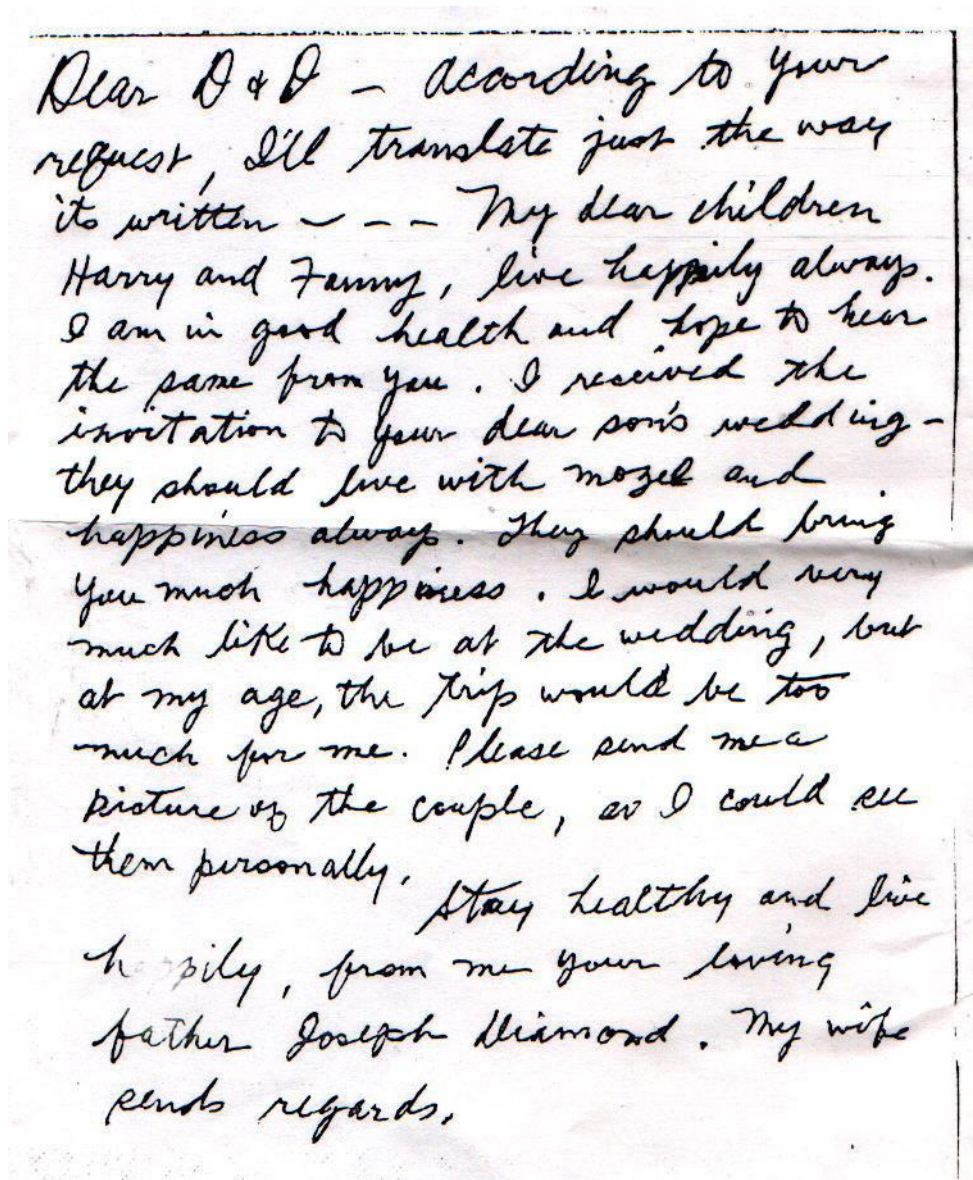 Dear D & D – According to your
request, I'll translate just the way
its written – – – My dear children
Harry and Fanny, live happily always.
I am in good health and hope to hear
the same from you. I received the
invitation to your dear son's wedding –
they should live with mozel and
happiness always. They should bring
you much happiness. I would very
much like to be at the wedding, but
at my age, the trip would be too
much for me. Please send me a
picture of the couple, so I could see
them personally.
Stay healthy and live
happily, from me your loving
father Joseph Diamond. My wife
sends regards.